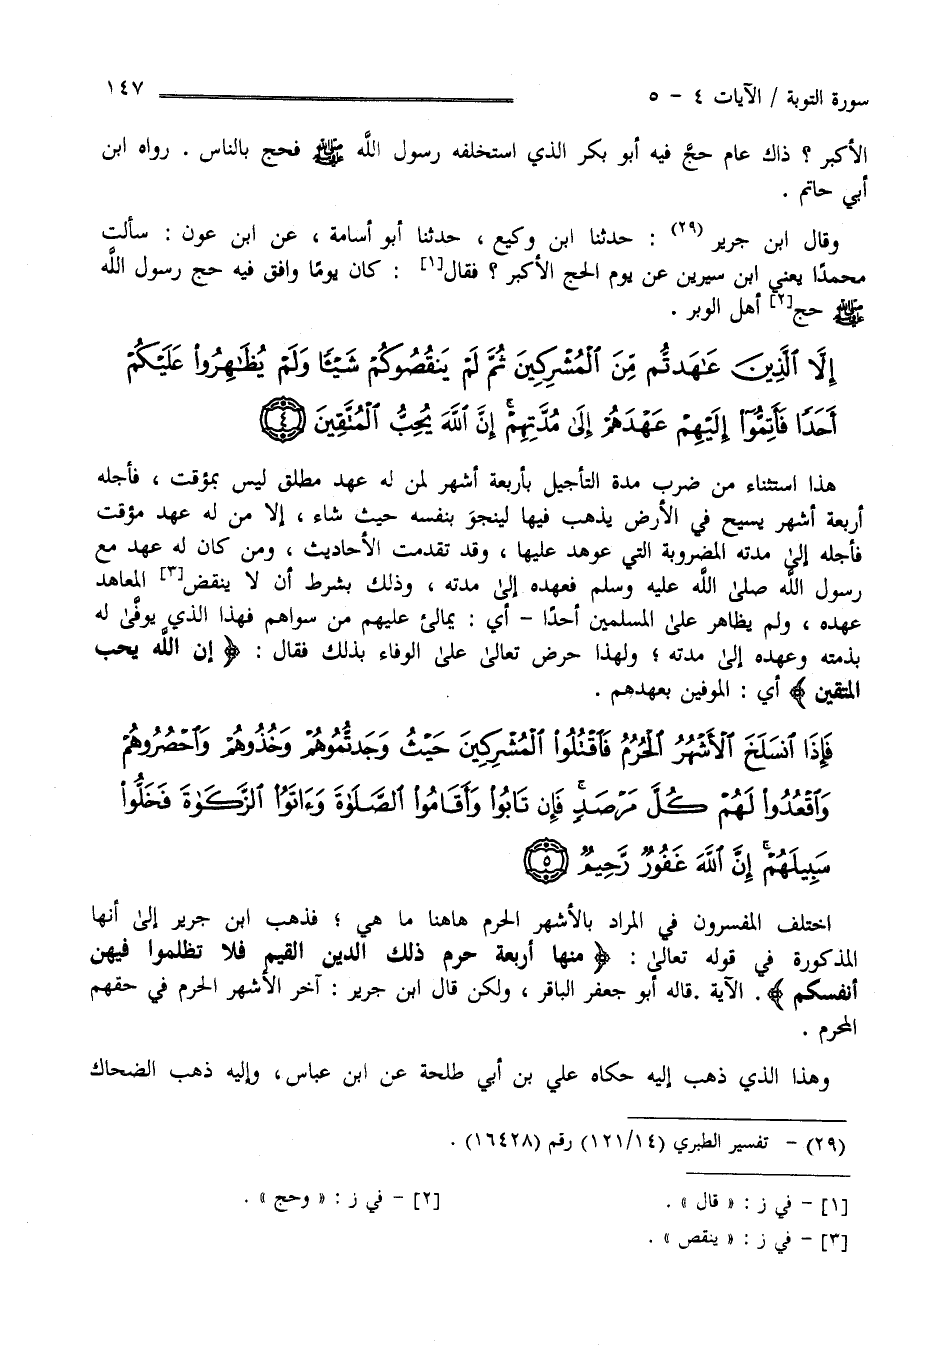 سورة التوبة / الآيات ٤ - ٥ ١٤٧
الأكبر ؟ ذاك عام حجَّ فيه أبو بكر الذي استخلفه رسول اللَّه ﷺ فحج بالناس . رواه ابن
أبي حاتم .
وقال ابن جرير (٢٩) : حدثنا ابن وكيع ، حدثنا أبو أسامة ، عن ابن عون : سألت
محمدًا يعني ابن سيرين عن يوم الحج الأكبر ؟ فقال[١] : كان يومًا وافق فيه حج رسول اللَّه
ﷺ حج[٢] أهل الوبر .
إِلَّا ٱلَّذِينَ عَٰهَدتُّم مِّنَ ٱلْمُشْرِكِينَ ثُمَّ لَمْ يَنقُصُوكُمْ شَيْـًٔا وَلَمْ يُظَٰهِرُوا۟ عَلَيْكُمْ
أَحَدًا فَأَتِمُّوٓا۟ إِلَيْهِمْ عَهْدَهُمْ إِلَىٰ مُدَّتِهِمْ ۚ إِنَّ ٱللَّهَ يُحِبُّ ٱلْمُتَّقِينَ ﴿٤﴾
هذا استثناء من ضرب مدة التأجيل بأربعة أشهر لمن له عهد مطلق ليس بمؤقت ، فأجله
أربعة أشهر يسيح في الأرض يذهب فيها لينجوَ بنفسه حيث شاء ، إلا من له عهد مؤقت
فأجله إلىٰ مدته المضروبة التي عوهد عليها ، وقد تقدمت الأحاديث ، ومن كان له عهد مع
رسول اللَّه صلىٰ اللَّه عليه وسلم فعهده إلىٰ مدته ، وذلك بشرط أن لا ينقض[٣] المعاهد
عهده ، ولم يظاهر علىٰ المسلمين أحدًا - أي : يمالئ عليهم من سواهم فهذا الذي يوفَّىٰ له
بذمته وعهده إلىٰ مدته ؛ ولهذا حرض تعالىٰ علىٰ الوفاء بذلك فقال : ﴿ إن اللَّه يحب
المتقين ﴾ أي : الموفين بعهدهم .
فَإِذَا ٱنسَلَخَ ٱلْأَشْهُرُ ٱلْحُرُمُ فَٱقْتُلُوا۟ ٱلْمُشْرِكِينَ حَيْثُ وَجَدتُّمُوهُمْ وَخُذُوهُمْ وَٱحْصُرُوهُمْ
وَٱقْعُدُوا۟ لَهُمْ كُلَّ مَرْصَدٍ ۚ فَإِن تَابُوا۟ وَأَقَامُوا۟ ٱلصَّلَوٰةَ وَءَاتَوُا۟ ٱلزَّكَوٰةَ فَخَلُّوا۟
سَبِيلَهُمْ ۚ إِنَّ ٱللَّهَ غَفُورٌ رَّحِيمٌ ﴿٥﴾
اختلف المفسرون في المراد بالأشهر الحرم هاهنا ما هي ؛ فذهب ابن جرير إلىٰ أنها
المذكورة في قوله تعالىٰ : ﴿ منها أربعة حرم ذلك الدين القيم فلا تظلموا فيهن
أنفسكم ﴾ . الآية .قاله أبو جعفر الباقر ، ولكن قال ابن جرير : آخر الأشهر الحرم في حقهم
المحرم .
وهذا الذي ذهب إليه حكاه علي بن أبي طلحة عن ابن عباس، وإليه ذهب الضحاك
(٢٩) - تفسير الطبري (١٢١/١٤) رقم (١٦٤٢٨) .
[١] - في ز : « قال » . [٢] - في ز : « وحج » .
[٣] - في ز : « ينقص » .